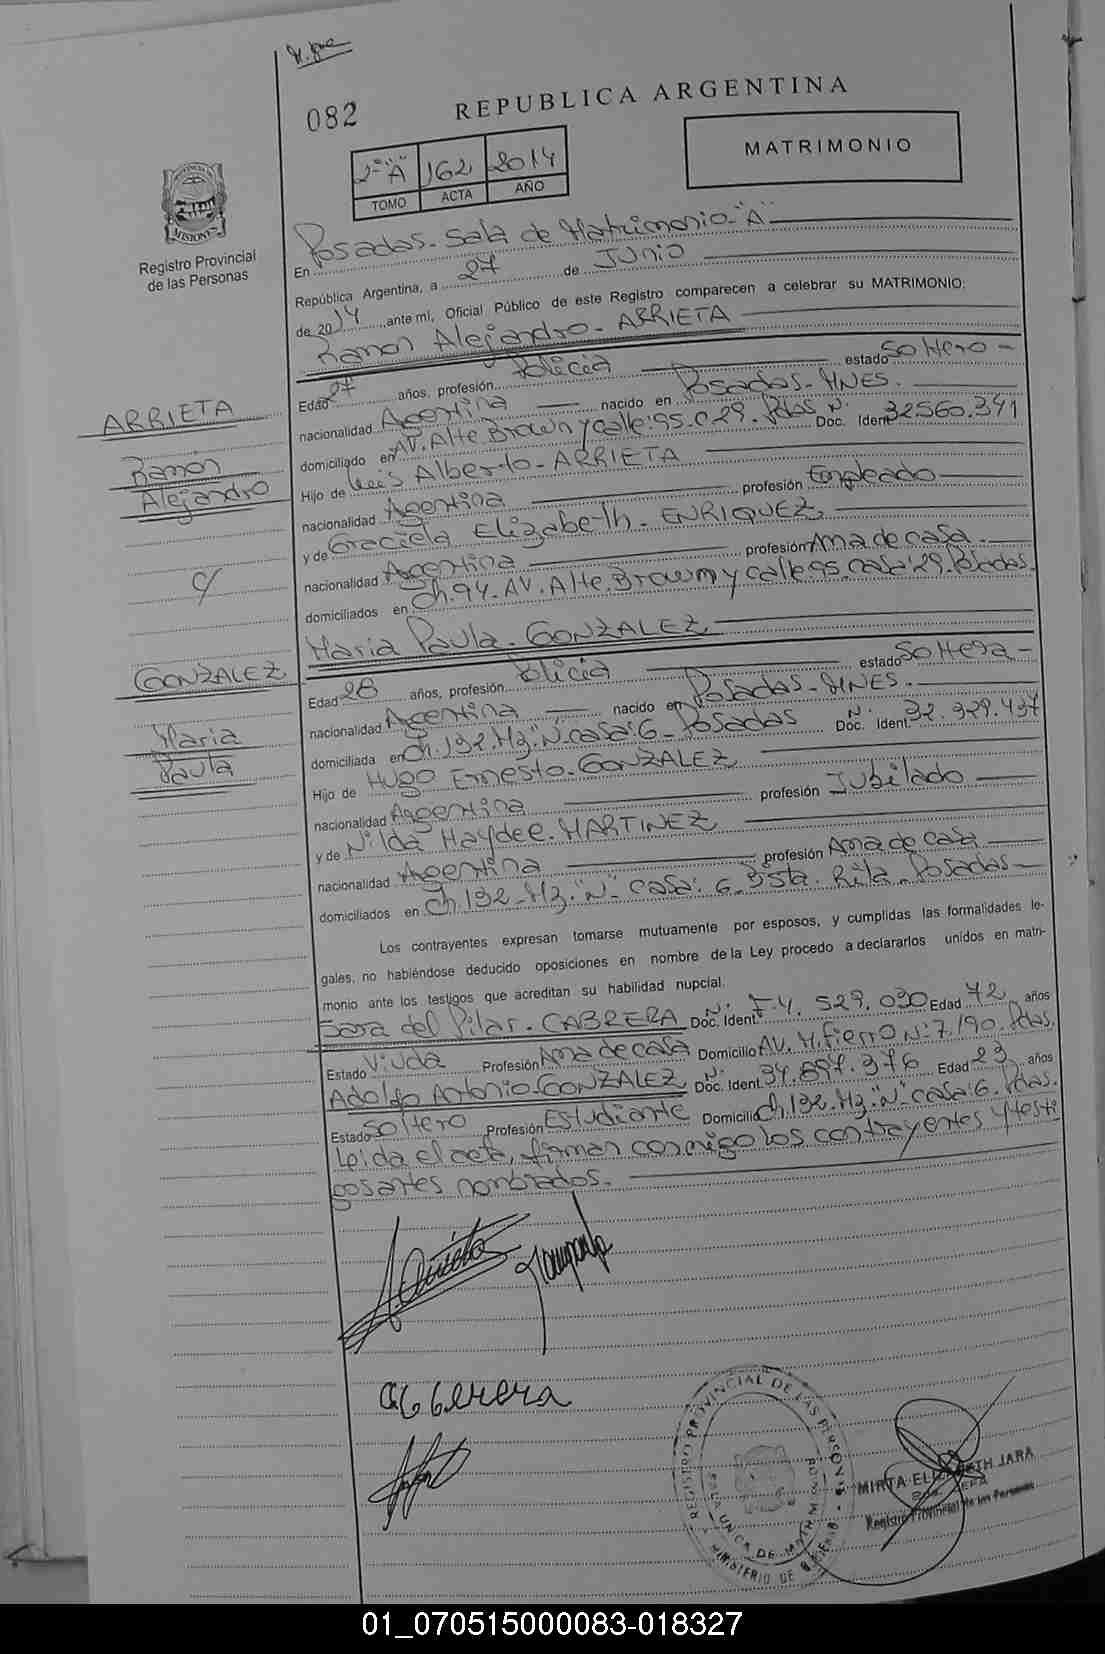 082
REPUBLICA ARGENTINA
MATRIMONIO
2º "A" 162 2014
TOMO ACTA AÑO
PROVINCIA DE
MISIONES
Registro Provincial
de las Personas
En Posadas - Sala de Matrimonio - "A"
República Argentina, a 27 de Junio
de 2014 ante mi, Oficial Público de este Registro comparecen a celebrar su MATRIMONIO:
Ramon Alejandro - ARRIETA
Edad 27 años, profesión Policia estado Soltero -
nacionalidad Argentina nacido en Posadas - MNES.
domiciliado en AV. Alte. Brown y calle: 95. C 29. Pdas Doc. Ident Nº 32560.341
Hijo de Luis Alberto - ARRIETA
nacionalidad Argentina profesión Empleado
y de Graciela Elizabeth - ENRIQUEZ
nacionalidad Argentina profesión Ama de casa -
domiciliados en Ch. 94. AV. Alte. Brown y calle 95. casa: 29. Posadas.
Maria Paula - GONZALEZ
Edad 28 años, profesión Policia estado Soltera -
nacionalidad Argentina nacido en Posadas - MNES.
domiciliada en Ch. 192. Mz. "N". casa: 6 - Posadas Doc. Ident. Nº 32.329.437
Hijo de Hugo Ernesto - GONZALEZ
nacionalidad Argentina profesión Jubilado
y de Nilda Haydee - MARTINEZ
nacionalidad Argentina profesión Ama de casa
domiciliados en Ch. 192 - Mz. "N" - casa: 6 - Bº Sta. Rita - Posadas -
Los contrayentes expresan tomarse mutuamente por esposos, y cumplidas las formalidades le-
gales, no habiéndose deducido oposiciones en nombre de la Ley procedo a declararlos unidos en matri-
monio ante los testigos que acreditan su habilidad nupcial.
Sara del Pilar - CABRERA Doc. Ident. Nº F. 4. 529. 030 Edad 72 años
Estado Viuda Profesión Ama de casa Domicilio AV. M. Fierro Nº 7.190. Pdas.
Adolfo Antonio - GONZALEZ Doc. Ident. Nº 34.897.376 Edad 23 años
Estado Soltero Profesión Estudiante Domicilio Ch. 192. Mz. "N" - casa: 6. Pdas.
Leida el acta, firman conmigo los contrayentes y testi
gos antes nombrados.
ARRIETA
Ramón
Alejandro
c/
GONZALEZ
Maria
Paula
REGISTRO PROVINCIAL DE LAS PERSONAS
SALA UNICA DE MATRIMONIOS
MINISTERIO DE GOBIERNO
MIRTA ELIZABETH JARA
Registro Provincial de las Personas
01_070515000083-018327